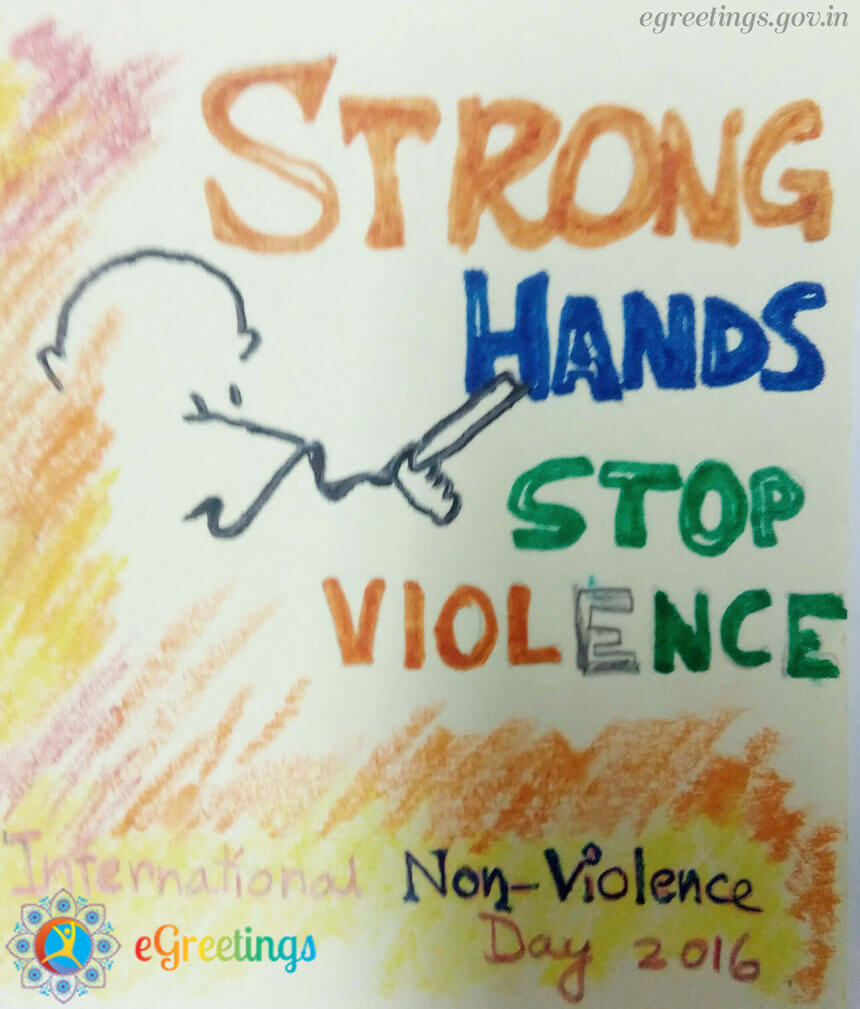 egreetings.gov.in
STRONG
HANDS
STOP
VIOLENCE
International Non-Violence
eGreetings
Day 2016